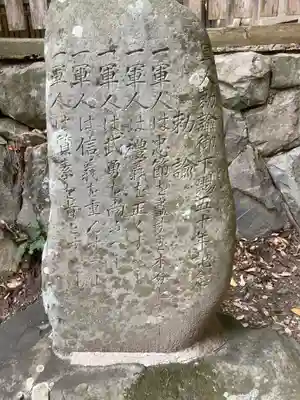 軍人勅諭御下賜五十年記念
勅諭
一軍人は忠節を盡すを本分とすべし
一軍人は禮義を正くすべし
一軍人は武勇を尚ふべし
一軍人は信義を重んずべし
一軍人は質素を旨とすべし